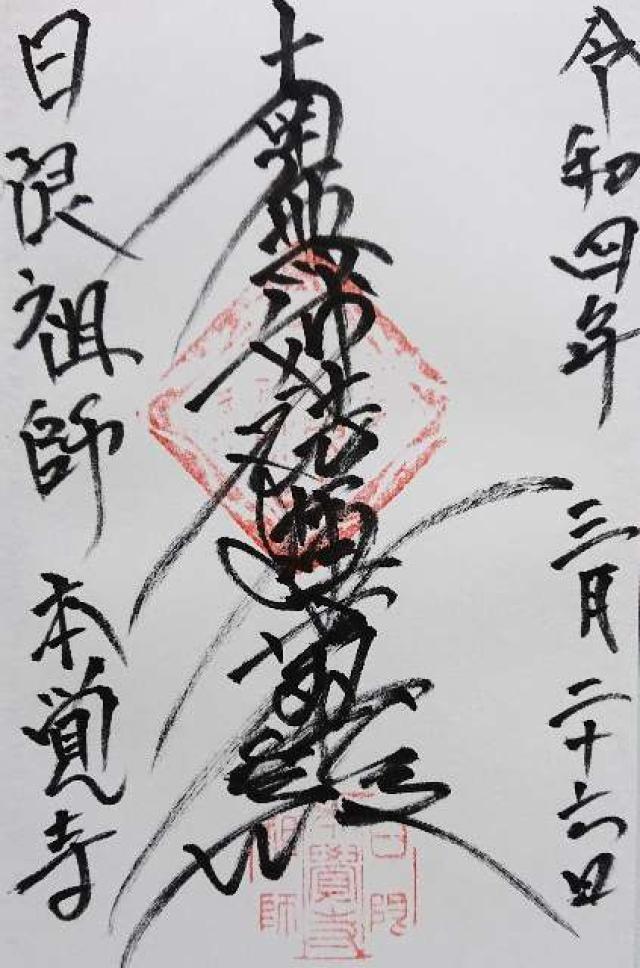 令和四年 三月二十六日
南無妙法蓮華経
日限祖師 本覚寺
日限
本覺寺
祖師